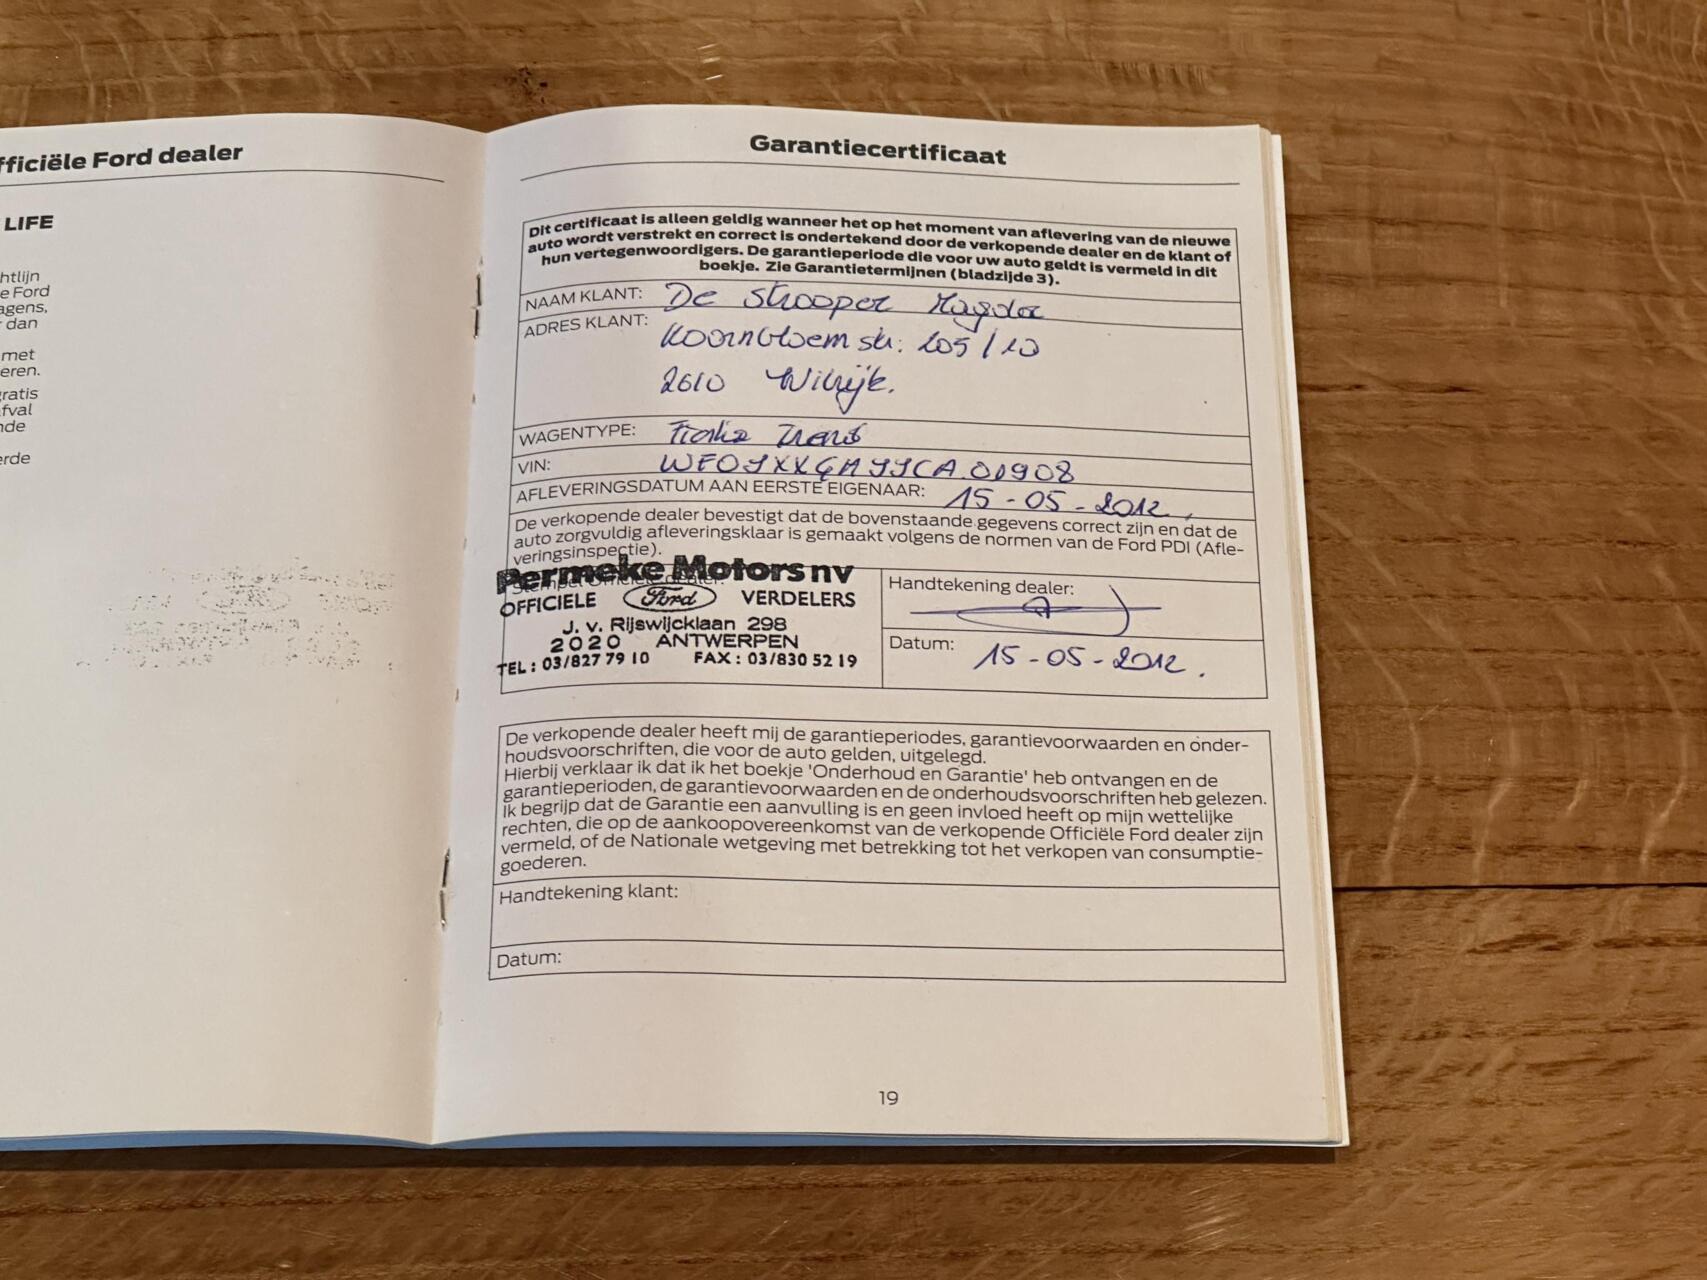 fficiële Ford dealer
LIFE
htlijn
e Ford
agens,
dan
met
eren.
ratis
fval
nde
erde
Garantiecertificaat
Dit certificaat is alleen geldig wanneer het op het moment van aflevering van de nieuwe
auto wordt verstrekt en correct is ondertekend door de verkopende dealer en de klant of
hun vertegenwoordigers. De garantieperiode die voor uw auto geldt is vermeld in dit
boekje. Zie Garantietermijnen (bladzijde 3).
NAAM KLANT: De Strooper Magda
ADRES KLANT: Koornbloemstr. 205/10
2610 Wilrijk.
WAGENTYPE: Trend
VIN:
AFLEVERINGSDATUM AAN EERSTE EIGENAAR: 15-05-2012.
De verkopende dealer bevestigt dat de bovenstaande gegevens correct zijn en dat de
auto zorgvuldig afleveringsklaar is gemaakt volgens de normen van de Ford PDI (Afle-
veringsinspectie).
Stempel Officiële dealer:
Permeke Motors nv
OFFICIELE Ford VERDELERS
J. v. Rijswijcklaan 298
2020 ANTWERPEN
TEL: 03/827 79 10 FAX: 03/830 52 19
Handtekening dealer:
Datum: 15-05-2012.
De verkopende dealer heeft mij de garantieperiodes, garantievoorwaarden en onder-
houdsvoorschriften, die voor de auto gelden, uitgelegd.
Hierbij verklaar ik dat ik het boekje 'Onderhoud en Garantie' heb ontvangen en de
garantieperioden, de garantievoorwaarden en de onderhoudsvoorschriften heb gelezen.
Ik begrijp dat de Garantie een aanvulling is en geen invloed heeft op mijn wettelijke
rechten, die op de aankoopovereenkomst van de verkopende Officiële Ford dealer zijn
vermeld, of de Nationale wetgeving met betrekking tot het verkopen van consumptie-
goederen.
Handtekening klant:
Datum:
19